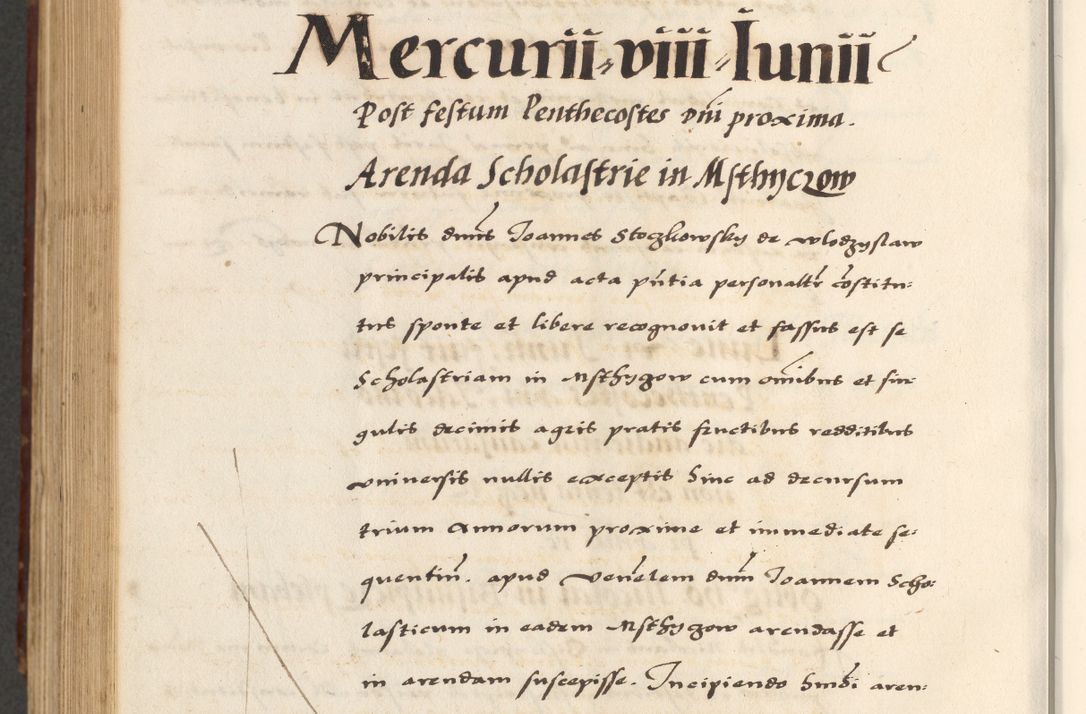 Mercurii viii Iunii
Post festum Penthecostes dñi proxima.
Arenda Scholastrie in Msthyczow
Nobilis dnus Ioannes Stogkowsky de Wlodzyslaw
principalis apud acta pñtia personalr costitu:
tus sponte et libere recognovit et fassus est se
Scholastriam in Msthygow cum omibus et sin
gulis decimis agris pratis fructibus redditibus
universis nullis exceptis hinc ad decursum
trium Annorum proxime et immediate se:
quentiu. apud Venelem dnum Ioannem Scho:
lasticum in eadem Msthygow arendasse et
in arendam suscepisse. Incipiendo hmoi aren: